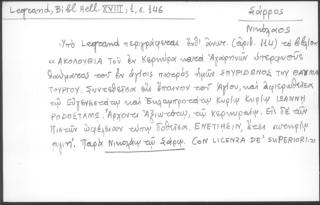 Legrand, Bibl. Hell. XVIII; 1, σ. 146
Σάρρος
Νικόλαος
Ὑπὸ Legrand περιγράφεται (ἀριθ. 114) τὸ βιβλίον
« ΑΚΟΛΟΥΘΙΑ Τοῦ ἐν Κερκύρᾳ κατὰ Ἀγαρηνῶν ὑπερφυοῦς
θαύματος τοῦ ἐν ἁγίοις πατρὸς ἡμῶν ΣΠΥΡΙΔΩΝΟΣ ΤΟΥ ΘΑΥΜΑ
ΤΟΥΡΓΟΥ. Συντεθεῖσα εἰς ἔπαινον τοῦ Ἁγίου, καὶ ἀφιερωθεῖσα
τῷ Εὐγενεστάτῳ καὶ Ἐκλαμπροτάτῳ Κυρίῳ Κυρίῳ ΙΩΑΝΝΗ
ΡΟΔΟΣΤΑΜΩ. Ἄρχοντι Ἀξιωτάτῳ, τῷ κερκυραίῳ. Εἰς δὲ τῶν
Πιστῶν ὠφέλειαν τύποις δοθεῖσα. ΕΝΕΤΙΗΣΙΝ, ἔτει σωτηρίῳ
αψιη΄. Παρὰ Νικολάῳ τῷ Σάρῳ. CON LICENZA DE' SUPERIORI.»